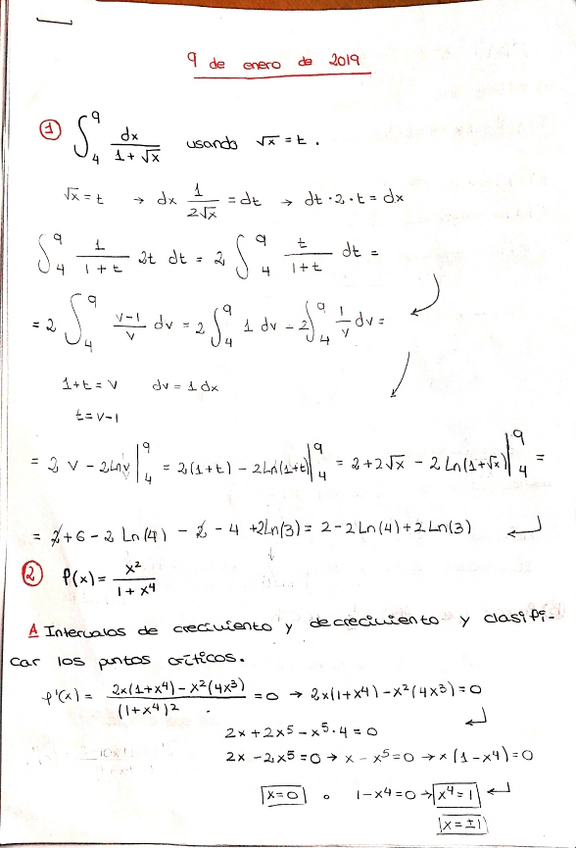 9 de enero de 2019
① ∫₄⁹ dx/(1+√x) usando √x = t.
√x = t → dx 1/(2√x) = dt → dt·2·t = dx
∫₄⁹ 1/(1+t) 2t dt = 2 ∫₄⁹ t/(1+t) dt =
= 2 ∫₄⁹ (v-1)/v dv = 2 ∫₄⁹ 1 dv - 2 ∫₄⁹ 1/v dv =
1+t = v dv = 1 dx
t = v-1
= 2 v - 2 Ln v |₄⁹ = 2(1+t) - 2 Ln(1+t) |₄⁹ = 2+2√x - 2 Ln(1+√x) |₄⁹ =
= 2+6-2 Ln(4) - 2 - 4 + 2Ln(3) = 2-2Ln(4)+2Ln(3)
② f(x) = x²/(1+x⁴)
A Intervalos de crecimiento y decrecimiento y clasifi-
car los puntos críticos.
f'(x) = (2x(1+x⁴) - x²(4x³))/(1+x⁴)² = 0 → 2x(1+x⁴) - x²(4x³) = 0
2x + 2x⁵ - x⁵·4 = 0
2x - 2x⁵ = 0 → x - x⁵ = 0 → x(1-x⁴) = 0
x=0 o 1-x⁴ = 0 → x⁴ = 1
x = ±1